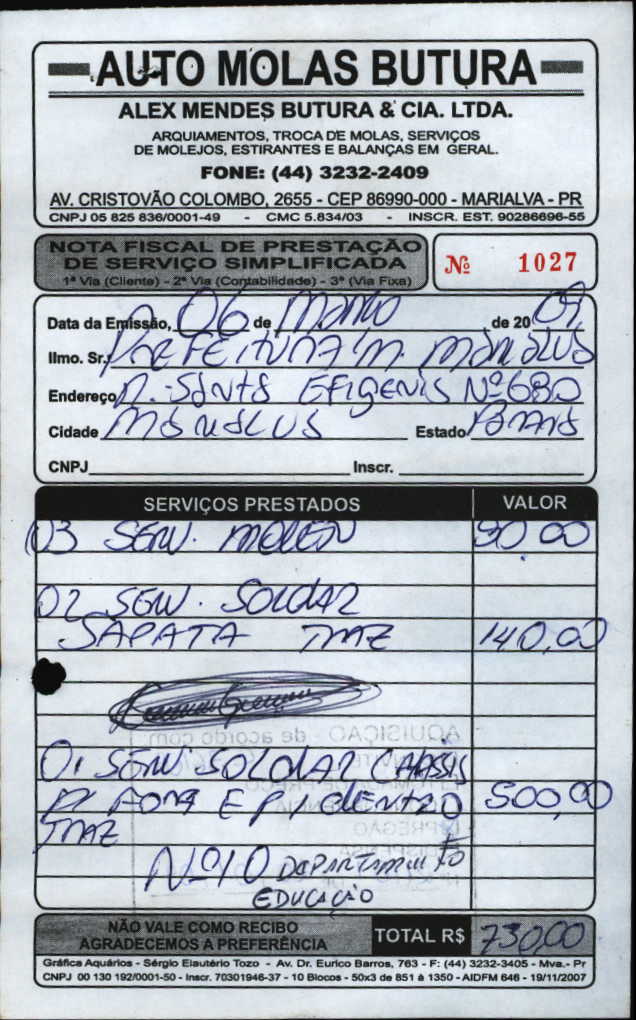 AUTO MOLAS BUTURA
ALEX MENDES BUTURA & CIA. LTDA.
ARQUIAMENTOS, TROCA DE MOLAS, SERVIÇOS
DE MOLEJOS, ESTIRANTES E BALANÇAS EM GERAL.
FONE: (44) 3232-2409
AV. CRISTOVÃO COLOMBO, 2655 - CEP 86990-000 - MARIALVA - PR
CNPJ 05 825 836/0001-49 - CMC 5.834/03 - INSCR. EST. 90286696-55
NOTA FISCAL DE PRESTAÇÃO
DE SERVIÇO SIMPLIFICADA
1ª Via (Cliente) - 2ª Via (Contabilidade) - 3ª (Via Fixa)
Nº 1027
Data da Emissão, 06 de Março de 2009
Ilmo. Sr. PREFEITURA M. MARIALVA
Endereço R. SANTA EFIGENIA Nº 680
Cidade MARIALVA Estado PARANA
CNPJ Inscr.
SERVIÇOS PRESTADOS VALOR
03 SERV. MOLEJO 90,00
02 SERV. SOLDAR
SAPATA TRAZ 140,00
01 SERV. SOLDAR CHASSIS
P/ FORA E P/ DENTRO 500,00
TRAZ
Nº 10 DEPARTAMENTO
EDUCAÇÃO
NÃO VALE COMO RECIBO
AGRADECEMOS A PREFERÊNCIA
TOTAL R$ 730,00
Gráfica Aquários - Sérgio Elautério Tozo - Av. Dr. Eurico Barros, 763 - F: (44) 3232-3405 - Mva.- Pr
CNPJ 00 130 192/0001-50 - Inscr. 70301946-37 - 10 Blocos - 50x3 de 851 à 1350 - AIDFM 646 - 19/11/2007